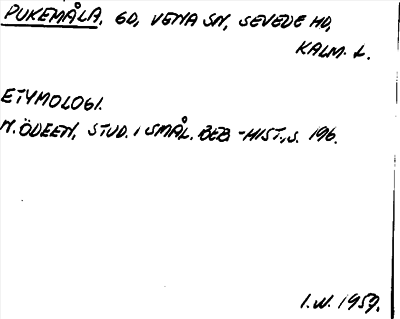 PUKEMÅLA, GD, VENA SN, SEVEDE HD,
KALM. L.
ETYMOLOGI.
N. ÖDEEN, STUD. I SMÅL. BEB.-HIST., S. 196.
I.W. 1959.